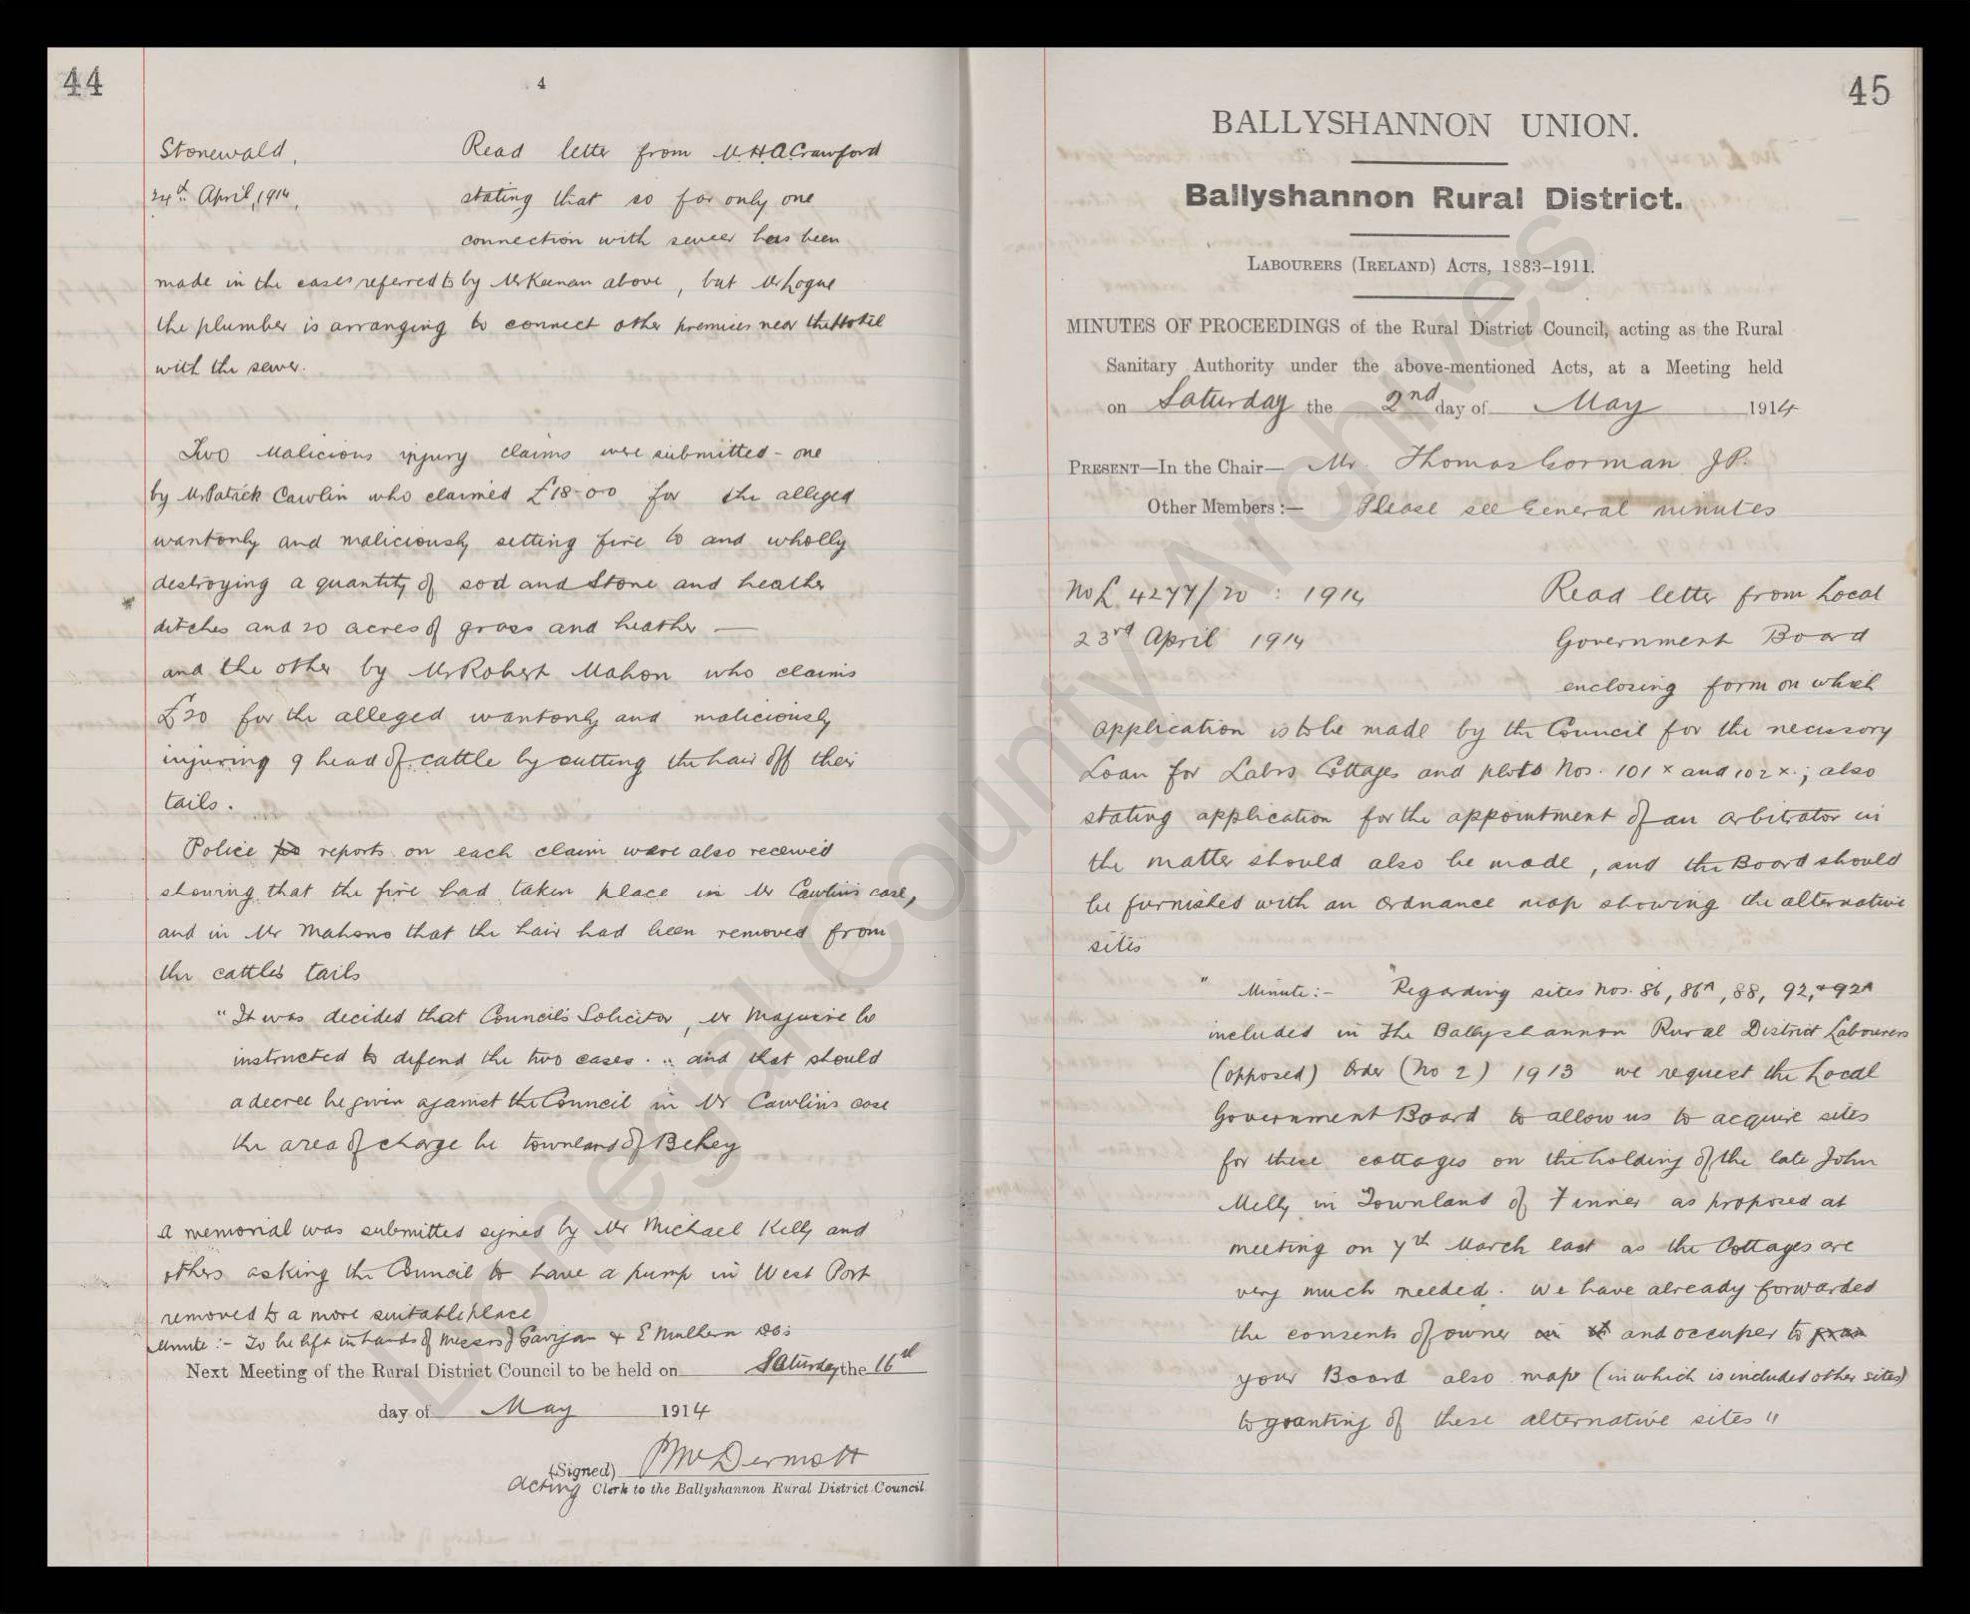 44
4
Stonewald,
24th April, 1914,
Read letter from Mr H.A. Crawford
stating that so far only one
connection with sewer has been
made in the cases referred to by Mr Keenan above, but Mr Logue
the plumber is arranging to connect other premises near the Hotel
with the sewer.
Two Malicious injury claims were submitted - one
by Mr Patrick Cawlin who claimed £18-0-0 for the alleged
wantonly and maliciously setting fire to and wholly
destroying a quantity of sod and Stone and heather
ditches and 20 acres of grass and heather —
and the other by Mr Robert Mahon who claims
£20 for the alleged wantonly and maliciously
injuring 9 head of cattle by cutting the hair off their
tails.
Police reports on each claim were also received
showing that the fire had taken place in Mr Cawlin's case,
and in Mr Mahons that the hair had been removed from
the cattles tails
"It was decided that Council's Solicitor, Mr Maguire be
instructed to defend the two cases. " and that should
a decree be given against the Council in Mr Cawlin's case
the area of charge be townland of Behey
A memorial was submitted signed by Mr Michael Kelly and
others asking the Council to have a pump in West Port
removed to a more suitable place
Minute:- To be left in hands of Messrs J Gavigan & E Mulhern DCs
Next Meeting of the Rural District Council to be held on Saturday the 16th
day of May 1914
(Signed) P McDermott
Acting Clerk to the Ballyshannon Rural District Council
45
BALLYSHANNON UNION.
Ballyshannon Rural District.
LABOURERS (IRELAND) ACTS, 1883–1911.
MINUTES OF PROCEEDINGS of the Rural District Council, acting as the Rural
Sanitary Authority under the above-mentioned Acts, at a Meeting held
on Saturday the 2nd day of May 1914
PRESENT—In the Chair— Mr. Thomas Gorman J.P.
Other Members:— Please see General minutes
No L 4277/20 : 1914
23rd April 1914
Read letter from Local
Government Board
enclosing form on which
application is to be made by the Council for the necessary
Loan for Labrs Cottages and plots Nos. 101 x and 102 x.; also
stating application for the appointment of an arbitrator in
the matter should also be made, and the Board should
be furnished with an Ordnance map showing the alternative
sites
" Minute:- "Regarding sites Nos. 86, 86A, 88, 92, & 92A
included in the Ballyshannon Rural District Labourers
(opposed) Order (No 2) 1913 we request the Local
Government Board to allow us to acquire sites
for these cottages on the holding of the late John
Melly in Townland of Finner as proposed at
meeting on 7th March last as the Cottages are
very much needed. We have already forwarded
the consents of owner and occupier to
your Board also map (in which is included other sites)
to granting of these alternative sites"
Donegal County Archives